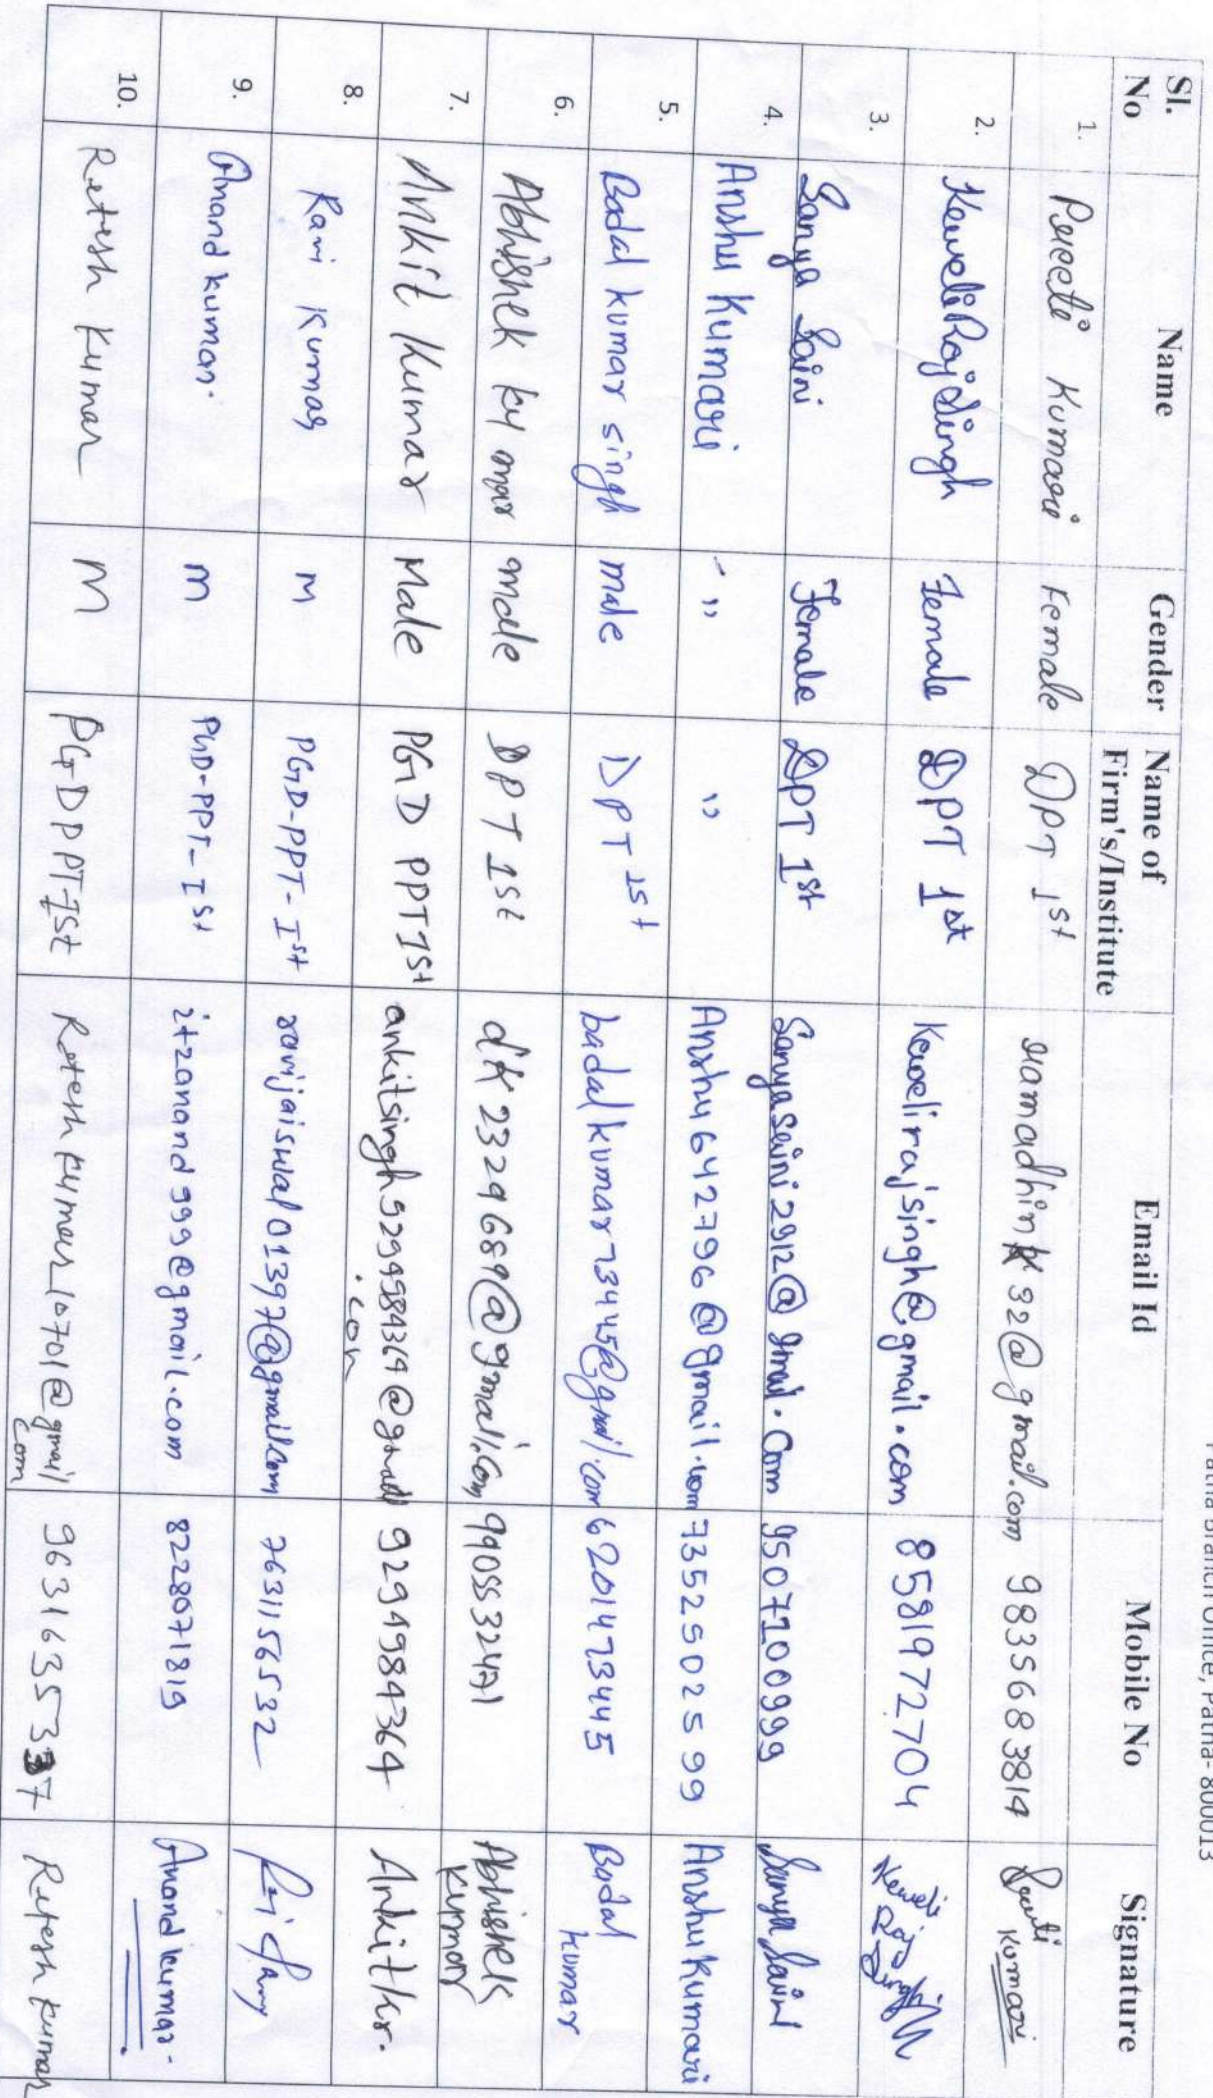 Patna Branch Office, Patna- 800013
Sl. No Name Gender Name of Firm's/Institute Email Id Mobile No Signature
1. Preeti Kumari Female DPT 1st ramadhink32@gmail.com 9835683814 Preeti Kumari
2. Keweli Raj Singh Female DPT 1st Kewelirajsingh@gmail.com 8581972704 Keweli Raj Singh
3. Sanya Saini Female DPT 1st Sanyasaini2912@gmail.com 9507100999 Sanya Saini
4. Anshu Kumari - " " Anshu642796@gmail.com 7352502599 Anshu kumari
5. Badal kumar singh male DPT 1st badalkumar73445@gmail.com 6201473445 Badal kumar
6. Abhishek kumar male DPT 1st dk2329689@gmail.com 9905532471 Abhishek kumar
7. Ankit Kumar Male PGD PPT 1st ankitsingh9294984364@gmail.com 9294984364 Ankit Kr.
8. Ravi Kumar M PGD-PPT-Ist ravijaiswal01397@gmail.com 7631156532
9. Anand kumar. M PGD-PPT-Ist itzanand999@gmail.com 8228071819 Anand kumar.
10. Retesh Kumar M PGDPPT-Ist Reteshkumar10701@gmail.com 9631635337 Retesh Kumar